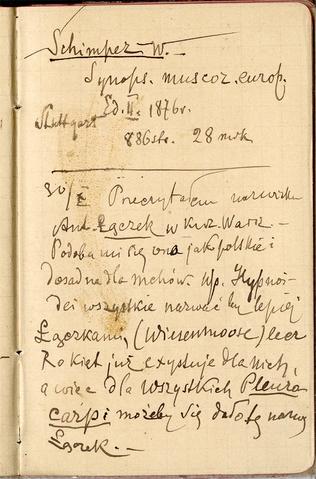 Schimper W. —
Synops. muscor. europ.
Ed. II. 1876 r.
Stuttgart
886 str. 28 mrk
30/X Przeczytałem nazwisko
Ant. Łączek w Kur. Warsz. —
Podoba mi się ono jak polskie i
dosadne dla mchów. Np. Hypnoi-
dei wszystkie nazwać by lepiej
(Wiesenmoose) lecz
Rokiet już exystuje dla nich,
a więc dla wszystkich Pleuro
carpi możeby się dało tę nazwę
Łączek. —